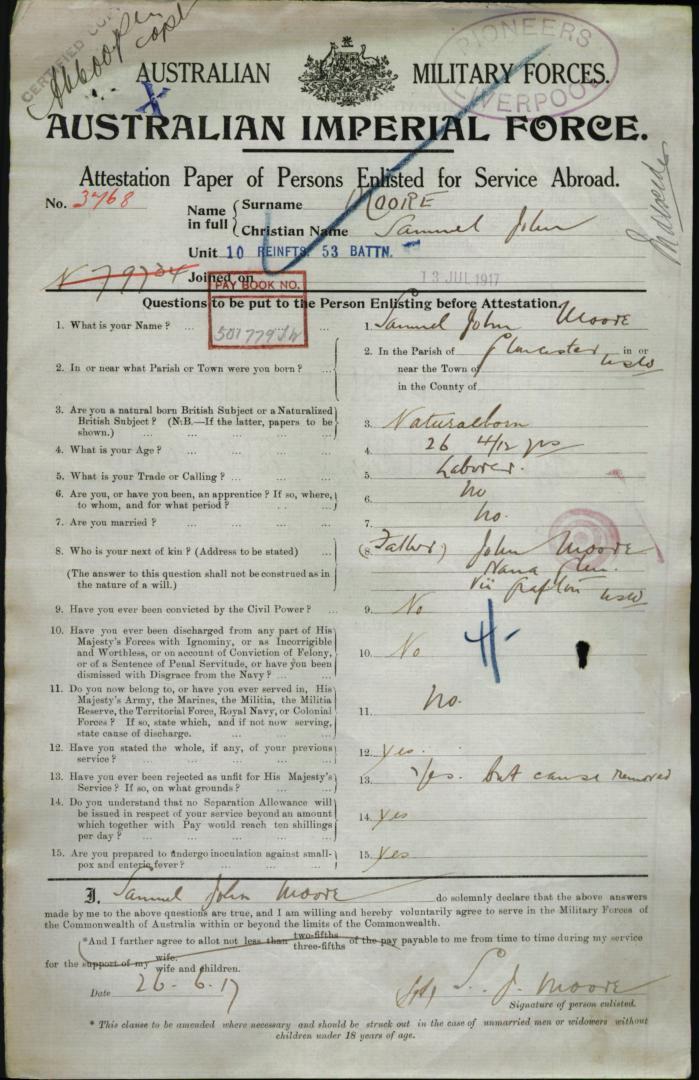 CERTIFIED COPY
copy
PIONEERS
LIVERPOOL
AUSTRALIAN MILITARY FORCES.
AUSTRALIAN IMPERIAL FORCE.
Attestation Paper of Persons Enlisted for Service Abroad.
No. 3768
Name in full { Surname MOORE
Christian Name Samuel John
Unit 10 REINFTS. 53 BATTN.
N 79734 Joined on 13 JUL 1917
PAY BOOK NO.
Questions to be put to the Person Enlisting before Attestation.
1. What is your Name? ... ... 1. Samuel John Moore
2. In or near what Parish or Town were you born? ... 2. In the Parish of Gloucester in or
near the Town of NSW
in the County of
3. Are you a natural born British Subject or a Naturalized
British Subject? (N.B.—If the latter, papers to be
shown.) ... ... 3. Natural born
4. What is your Age? ... ... 4. 26 4/12 yrs
5. What is your Trade or Calling? ... ... 5. Laborer.
6. Are you, or have you been, an apprentice? If so, where,
to whom, and for what period? ... 6. No
7. Are you married? ... ... 7. No.
8. Who is your next of kin? (Address to be stated) ... 8. (Father) John Moore
Nana Glen.
(The answer to this question shall not be construed as in
the nature of a will.) Via Grafton NSW
9. Have you ever been convicted by the Civil Power? ... 9. No
10. Have you ever been discharged from any part of His
Majesty's Forces with Ignominy, or as Incorrigible
and Worthless, or on account of Conviction of Felony,
or of a Sentence of Penal Servitude, or have you been
dismissed with Disgrace from the Navy? ... 10. No
11. Do you now belong to, or have you ever served in, His
Majesty's Army, the Marines, the Militia, the Militia
Reserve, the Territorial Force, Royal Navy, or Colonial
Forces? If so, state which, and if not now serving,
state cause of discharge. ... 11. No.
12. Have you stated the whole, if any, of your previous
service? ... ... 12. Yes.
13. Have you ever been rejected as unfit for His Majesty's
Service? If so, on what grounds? ... 13. Yes. but cause removed
14. Do you understand that no Separation Allowance will
be issued in respect of your service beyond an amount
which together with Pay would reach ten shillings
per day? ... ... 14. Yes
15. Are you prepared to undergo inoculation against small-
pox and enteric fever? ... 15. Yes
I, Samuel John Moore do solemnly declare that the above answers
made by me to the above questions are true, and I am willing and hereby voluntarily agree to serve in the Military Forces of
the Commonwealth of Australia within or beyond the limits of the Commonwealth.
*And I further agree to allot not less than two-fifths three-fifths of the pay payable to me from time to time during my service
for the support of my wife. wife and children.
Date 26-6-17 S. J. Moore
Signature of person enlisted.
* This clause to be amended where necessary and should be struck out in the case of unmarried men or widowers without
children under 18 years of age.